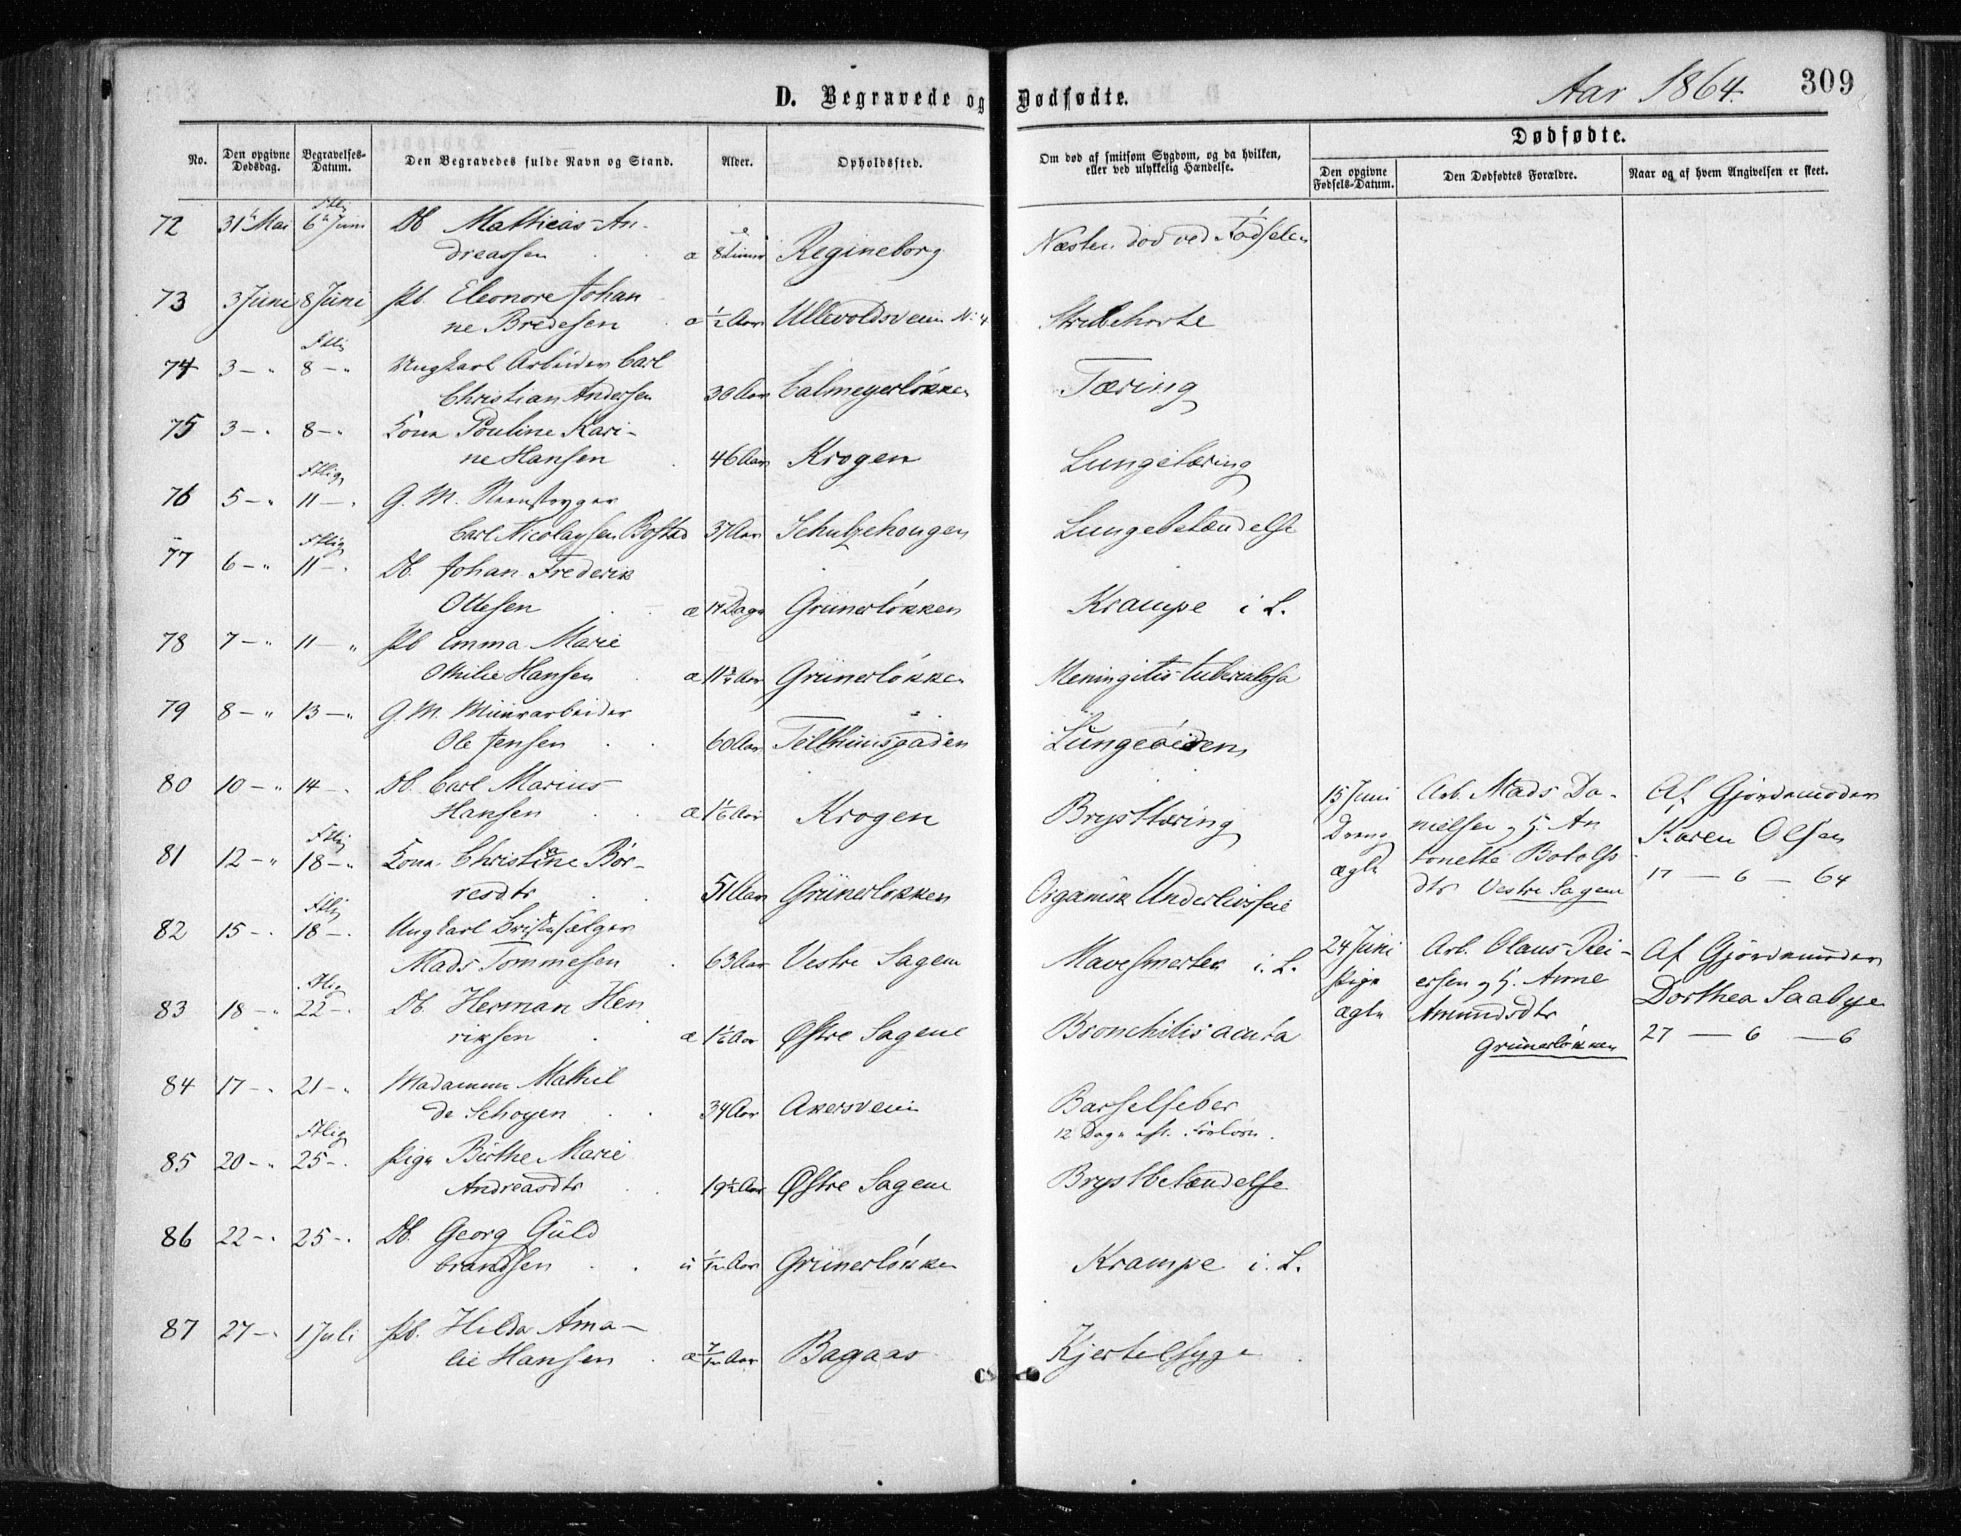 D. Begravede og Dødfødte.
Aar 1864.
309
No.
Den opgivne Dødsdag.
Begravelses-Datum.
Den Begravedes fulde Navn og Stand.
Alder.
Opholdssted.
Om død af smitsom Sygdom, og da hvilken, eller ved ulykkelig Hændelse.
Dødfødte.
Den opgivne Fødsels-Datum.
Den Dødfødtes Forældre.
Naar og af hvem Angivelsen er skeet.
72 31 Mai 6 Juni Db. Mathias An-
dreassen æ 8 Timer Regineborg Næsten død ved Fødselen
73 3 Juni 8 Juni Pb. Eleonore Johan
ne Bredesen æ 1/2 Aar Ullevoldsveien No 4 Strubehoste
74 3 - " 8 - " Ungkarl Arbeider Carl
Christian Andersen 30 Aar Calmeyerløkken Tæring
75 3 - " 8 - " Kona Pouline Kari-
ne Hansen 46 Aar Krogen Lungetæring
76 5 - " 11 - " G. M.
Carl Nicolaysen Bostad 37 Aar Schultzehougen Lungebetændelse
77 6 - " 11 - " Db. Johan Frederik
Ottesen æ 14 Dage Grünerløkken Krampe i L.
78 7 - " 11 - " Pb Emma Marie
Othilie Hansen æ 11 3/4 Aar Grünerløkken Meningitis tuberculosa
79 8 - " 13 - " G. M. Muurarbeider
Ole Jensen 60 Aar Telthuusgaden
80 10 - " 14 - " Db. Carl Marius
Hansen æ 1 1/6 Aar Krogen Brysttæring
15 Juni Arb. Mads Da- Af Gjordemoder
Dreng nielsen og H. An Karen Olsen
ægte tonette Botolfs 17 - 6 - 64
dtr Vestre Sagene
81 12 - " 18 - " Kona Christine Bør-
resdtr 51 Aar Grünerløkken Organisk Underlivsfeil
82 15 - " 18 - " Ungkarl
Mads Tommesen 63 Aar Vestre Sagene Mavesmerter i. L.
24 Juni Arb. Olaus Rei- Af Gjordemoder
Pige ersen og H. Anne Dorthea Saabye
ægte Amundsdtr 27 - 6 - 6
Grünerløkken
83 18 - " 22 - " Db. Herman Hen
riksen æ 1 1/6 Aar Østre Sagene Bronchitis acuta
84 17 - " 21 - " Madamme Mathil
de Schøyen 34 Aar Akersveien Barselfeber
12 Dage eft. Forløsn.
85 20 - " 25 - " Pige Birthe Marie
Andreasdtr 19 1/2 Aar Østre Sagene Brystbetændelse
86 22 - " 25 - " Db. Georg Guld
brandsen 1/12 Aar Grünerløkken Krampe i. L.
87 27 - " 1 Juli Pb. Hilda Ama-
lie Hansen æ 7/12 Aar Bagaas Kjertelsyge